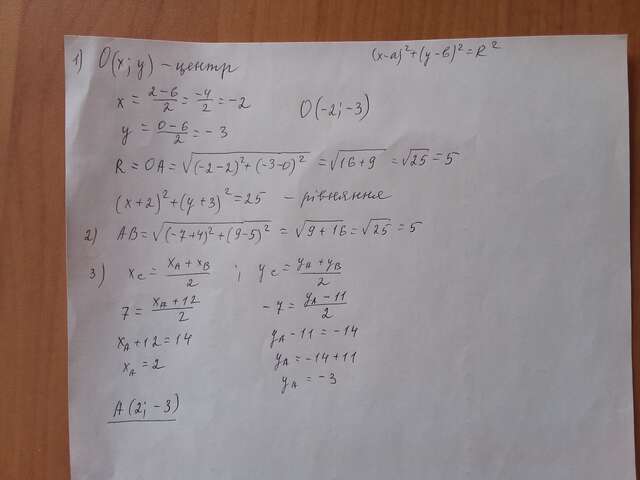 (x-a)²+(y-b)²=R²
1) O(x; y) – центр
x = (2-6)/2 = -4/2 = -2
O(-2; -3)
y = (0-6)/2 = -3
R = OA = √((-2-2)²+(-3-0)²) = √(16+9) = √25 = 5
(x+2)²+(y+3)²=25 – рівняння
2) AB = √((-7+4)²+(9-5)²) = √(9+16) = √25 = 5
3) x_C = (x_A+x_B)/2 ; y_C = (y_A+y_B)/2
7 = (x_A+12)/2 -7 = (y_A-11)/2
x_A+12=14 y_A-11=-14
x_A=2 y_A=-14+11
y_A=-3
A(2; -3)